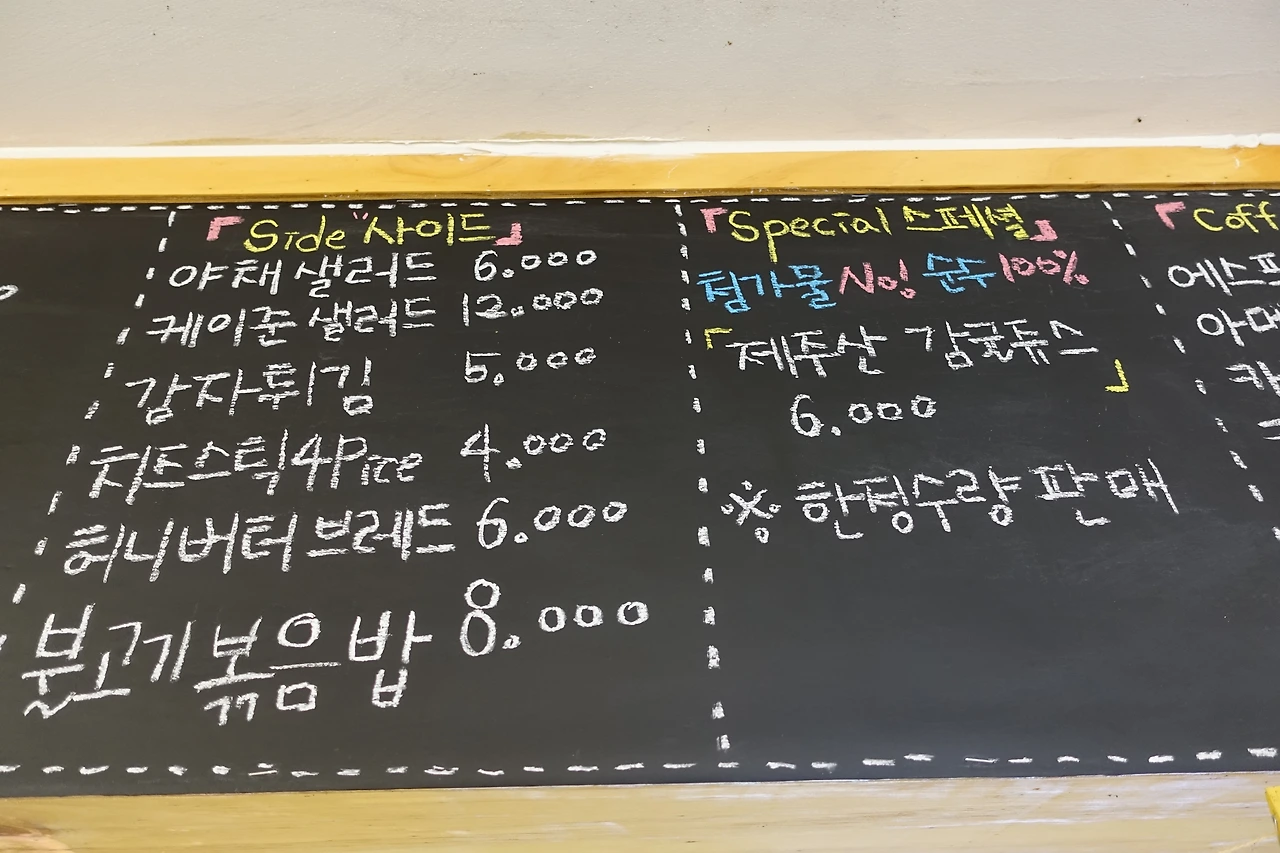 『Side 사이드』
야채 샐러드 6.000
케이준 샐러드 12.000
감자튀김 5.000
치즈스틱4Pice 4.000
허니버터브레드 6.000
불고기볶음밥 8.000
『Special 스페셜』
첨가물 NO! 순수100%
「제주산 감귤쥬스」
6.000
※ 한정수량 판매
『Coff
에스프
아메
카